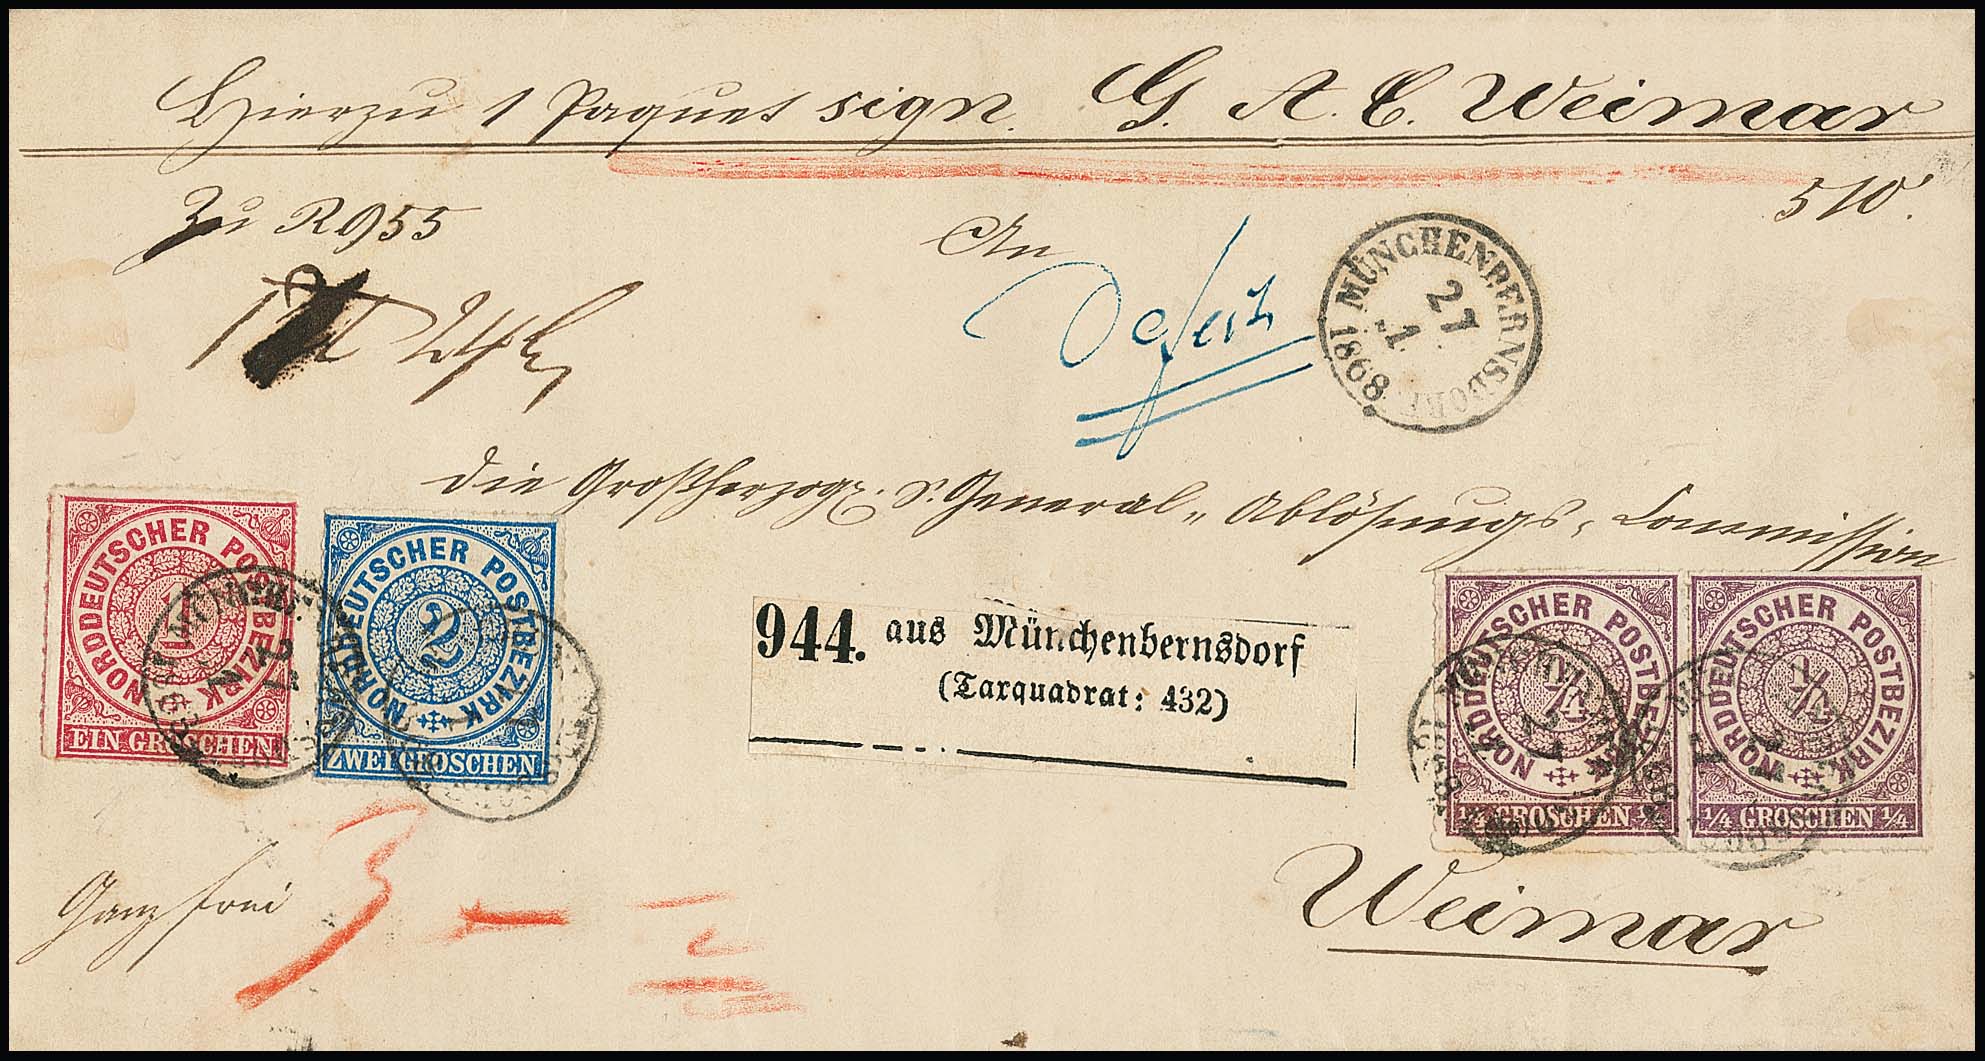 Hierzu 1 Paquet sign. G. A. C. Weimar
510.
Zu R 955
An
Defect
MÜNCHENBERNSDORF 1868
27
1
24
die Großherzogl. S. General-Ablösungs-Commission
NORDDEUTSCHER POSTBEZIRK
1
EIN GROSCHEN
NORDDEUTSCHER POSTBEZIRK
2
ZWEI GROSCHEN
944. aus Münchenbernsdorf
(Tarquadrat: 432)
NORDDEUTSCHER POSTBEZIRK
1/4
1/4 GROSCHEN 1/4
NORDDEUTSCHER POSTBEZIRK
1/4
1/4 GROSCHEN 1/4
Weimar
Ganz frei
3